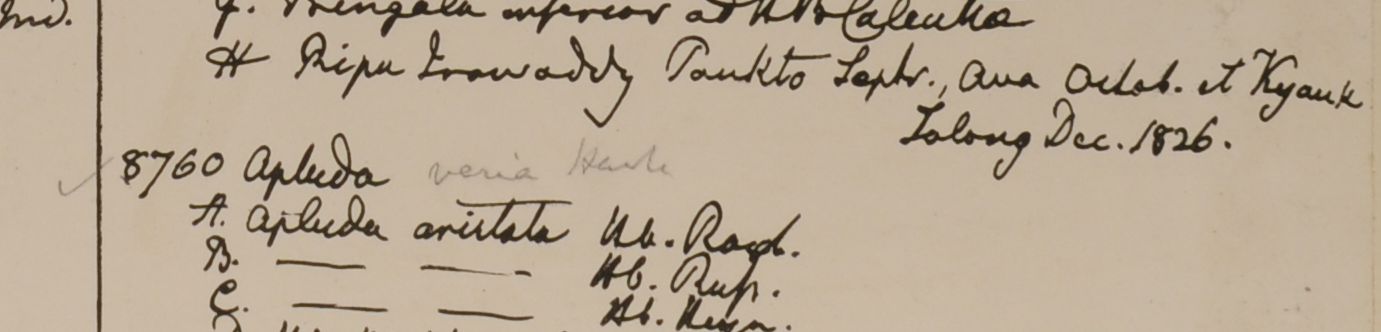 Ind.
J. Bengala inferior ad HBCalcutta
H Ripa Irawaddy Toukto Septr., Ava Octob. et Kyauk
Talong Dec. 1826.
8760 Apluda varia Hack
A. Apluda aristata Hb. Roxb.
B. — — Hb. Russ.
C. — — Hb. Heyn.